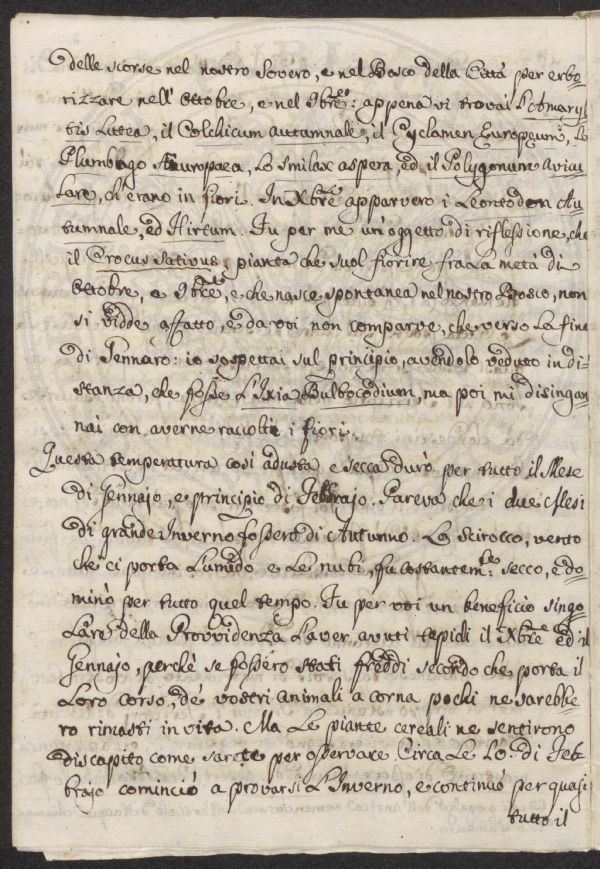 delle scorse nel nostro Sovero, e nel Bosco della Città per erbo-
rizzare nell'Ottobre, e nel 9bre: appena vi trovai L'Amaryl-
lis Lutea, il Colchicum auttamnale, il Cyclamen Europeum, La
Plumbago Europaea, Lo Smilax aspera, ed il Polygonum Avicu-
Lare, ch'erano in fiori. In Xbre apparvero i Leontodon Au-
tumnale, ed Hirtum. Fu per me un'oggetto di riflessione, che
il Crocus Sativus, pianta che suol fiorire fra La metà di
Ottobre, e 9bre, e che nasce spontanea nel nostro Bosco, non
si vidde affatto, e da voi non comparve, che verso La fine
di Gennaro: io sospettai sul principio, avendolo veduto in di-
stanza, che fosse L'Ixia Bulbocodium, ma poi mi disingan-
nai con averne raccolti i fiori.
Questa temperatura così adusta e secca durò per tutto il Mese
di Gennajo, e principio di Febbrajo. Pareva che i due Mesi
di grande Inverno fossero di Autunno. Lo Scirocco, vento
che ci porta L'umido e Le nubi, fu costantem.te secco, e do-
minò per tutto quel tempo. Fu per voi un beneficio singo-
Lare della Provvidenza L'aver avuti tepidi il Xbre ed il
Gennajo, perchè se fossero stati freddi secondo che porta il
Loro corso, de' vostri animali a corna pochi ne sarebbe-
ro rimasti in vita. Ma Le piante cereali ne sentirono
discapito come sarete per osservare. Circa Le 10. di Feb-
brajo cominciò a provarsi L'Inverno, e continuò per quasi
tutto il